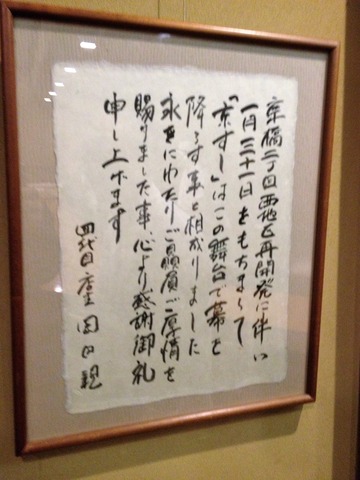 京橋二丁目西地区再開発に伴い
一月三十一日をもちまして
「京すし」はこの舞台で幕を
降ろす事と相成りました
永きにわたりご贔屓ご厚情を
賜りました事心より感謝御礼
申し上げます
四代目店主